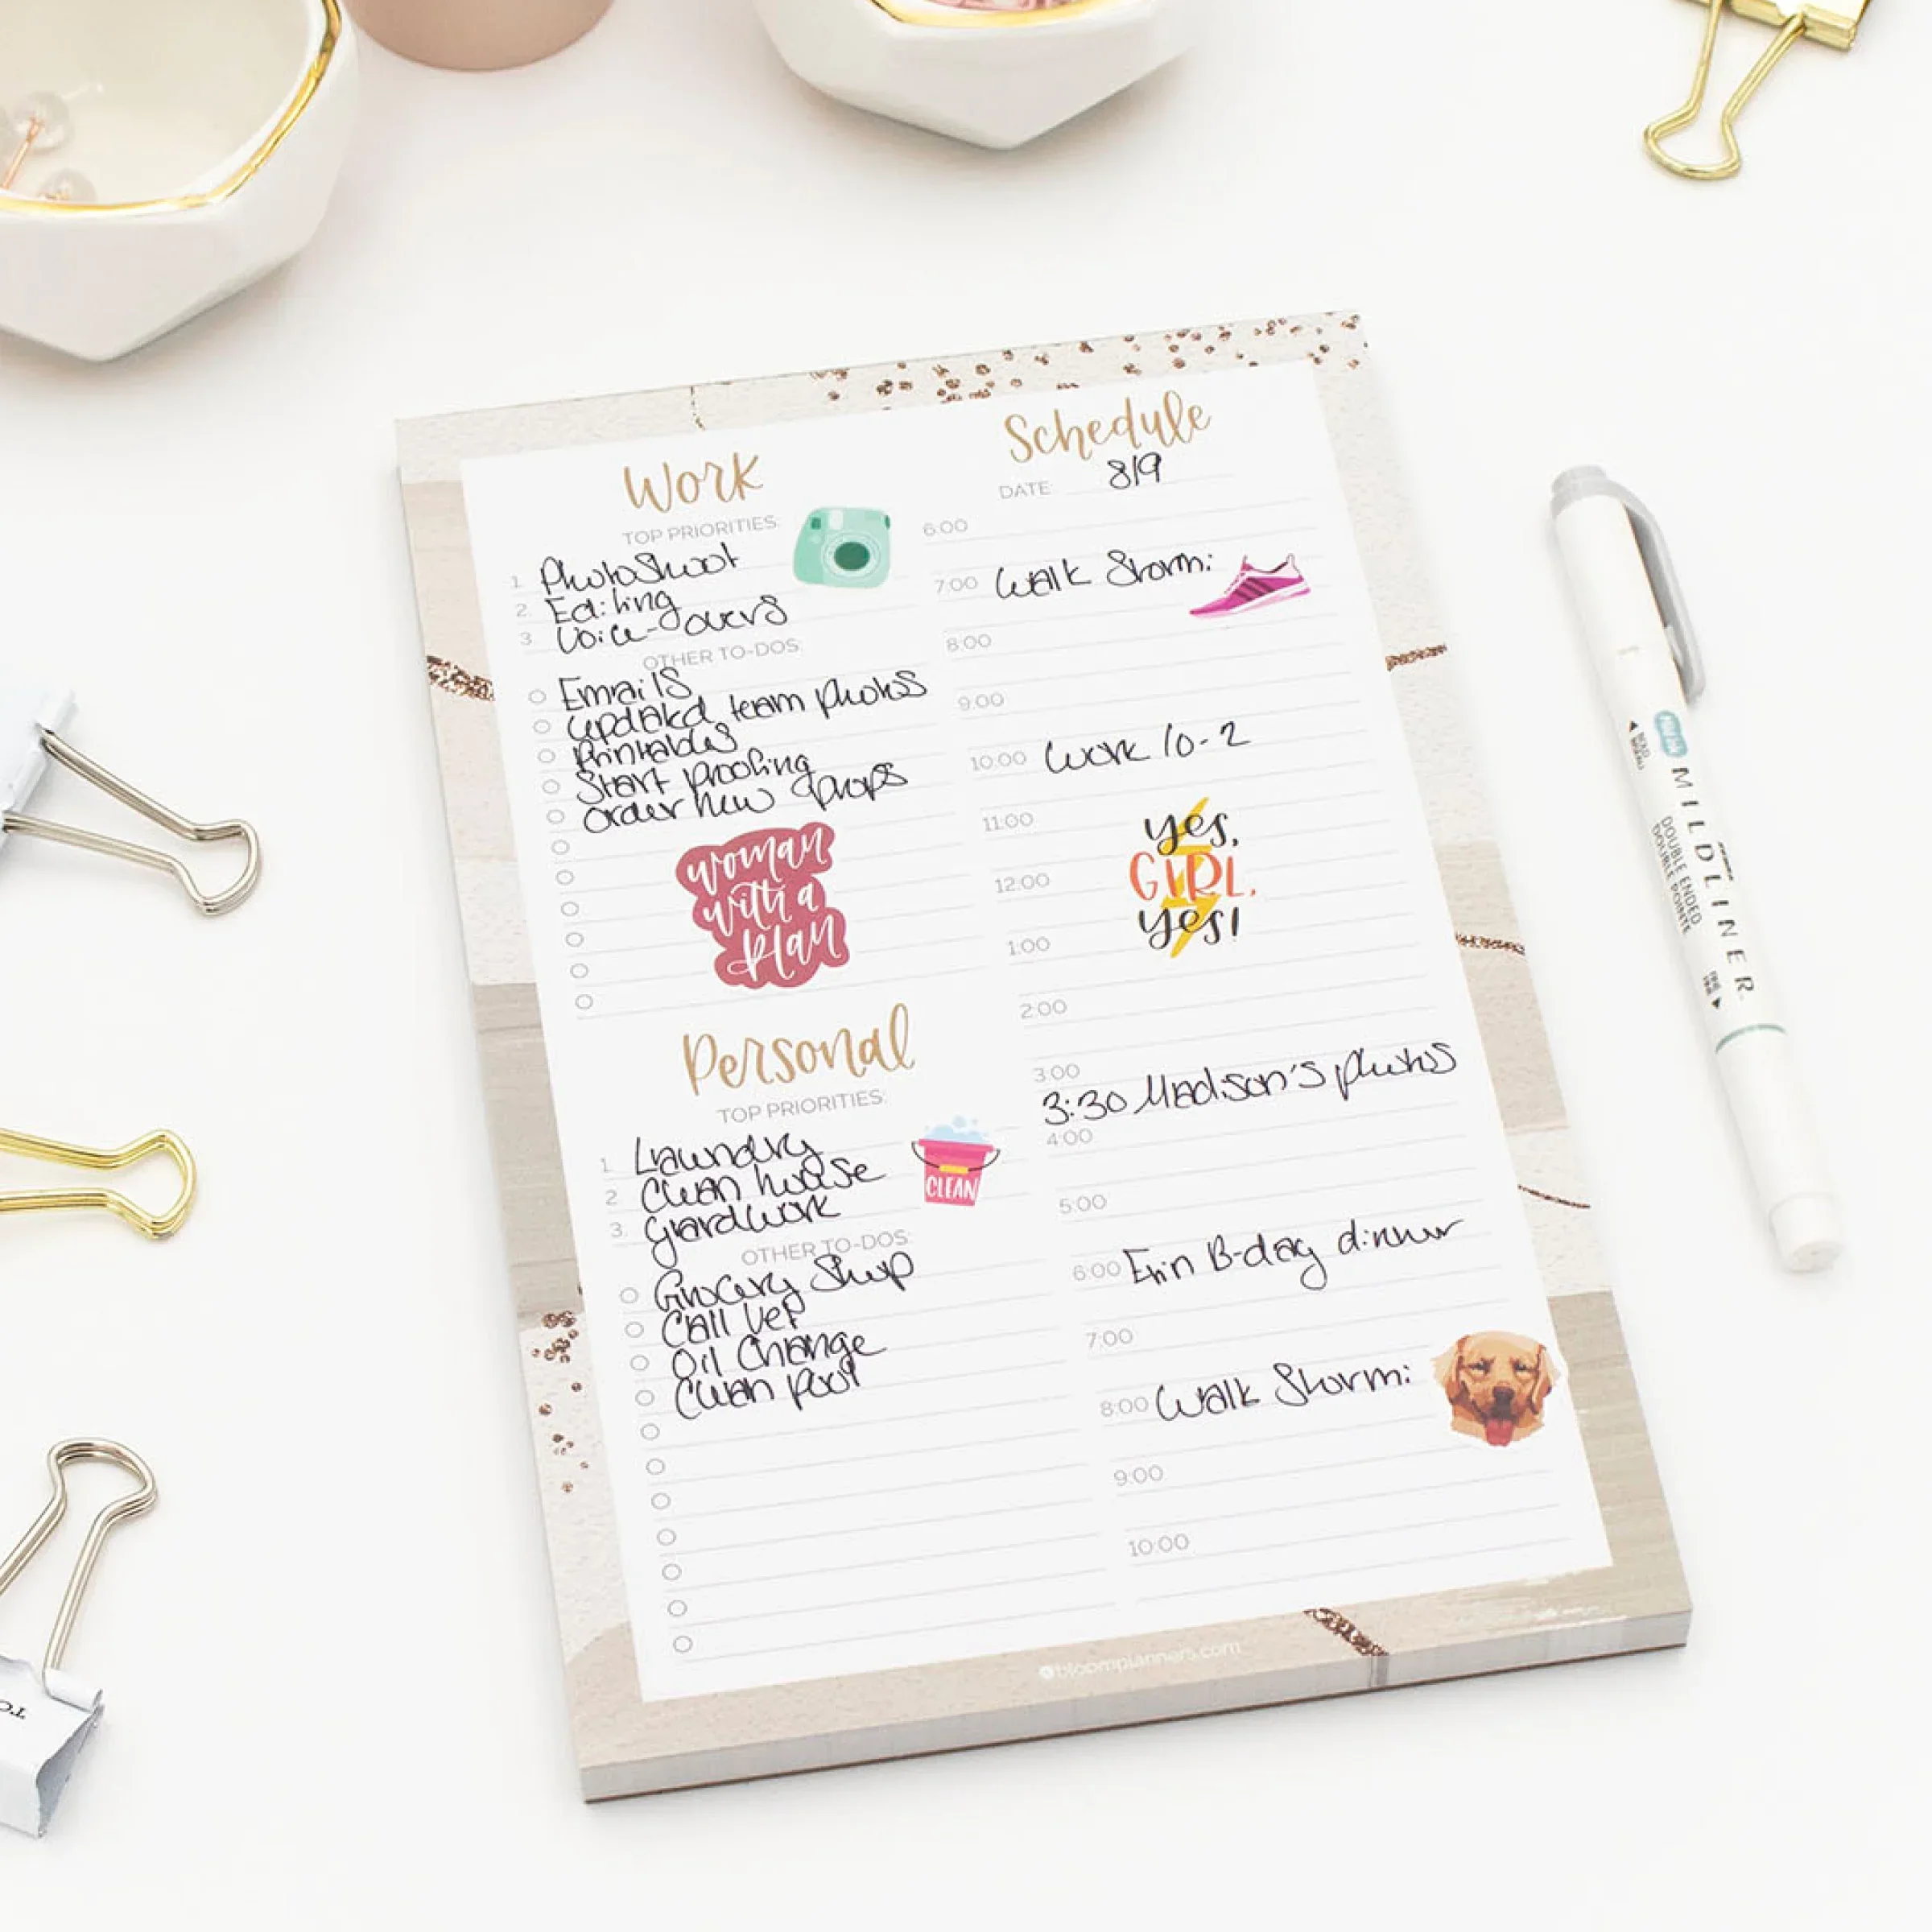 Work
TOP PRIORITIES:
1. Photoshoot
2. Editing
3. Voice-overs
OTHER TO-DOS:
Emails
updated team photos
Printables
Start proofing
order new props
woman
with a
plan
Personal
TOP PRIORITIES:
1. Laundry
2. Clean house
3. yardwork
CLEAN
OTHER TO-DOS:
Grocery Shop
Call Vet
Oil Change
Clean pool
Schedule
DATE 8/9
6:00
7:00 Walk Stormi
8:00
9:00
10:00 Work 10-2
11:00
yes,
12:00
GIRL,
yes!
1:00
2:00
3:00
3:30 Madison's photos
4:00
5:00
6:00 Erin B-day dinner
7:00
8:00 Walk Stormi
9:00
10:00
bloomplanners.com
MILDLINER
DOUBLE ENDED
DOUBLE POINTE
TO